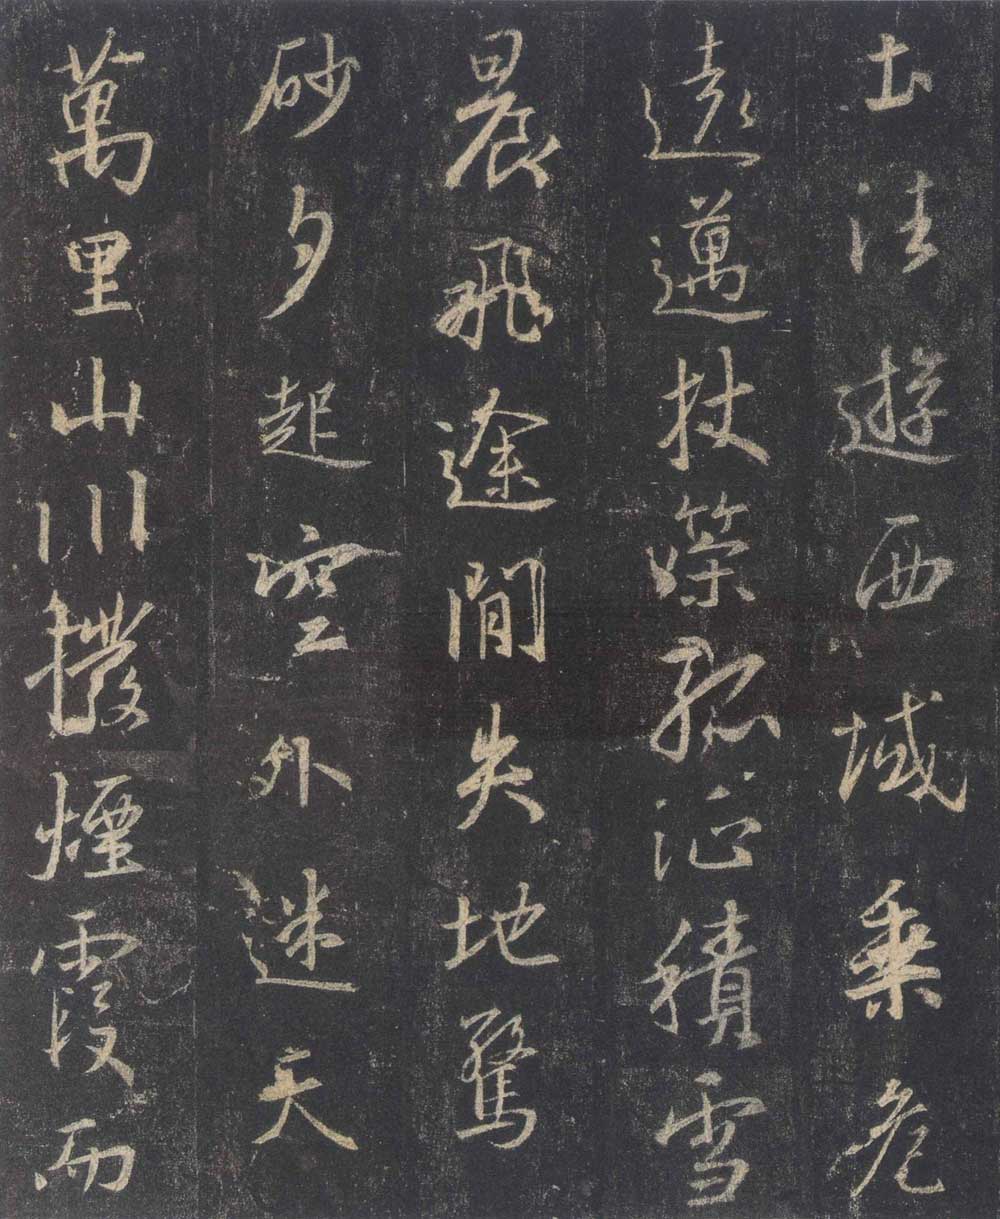 土法遊西域乗危
遠邁杖策孤征積雪
晨飛途間失地驚
砂夕起空外迷天
萬里山川撥煙霞而